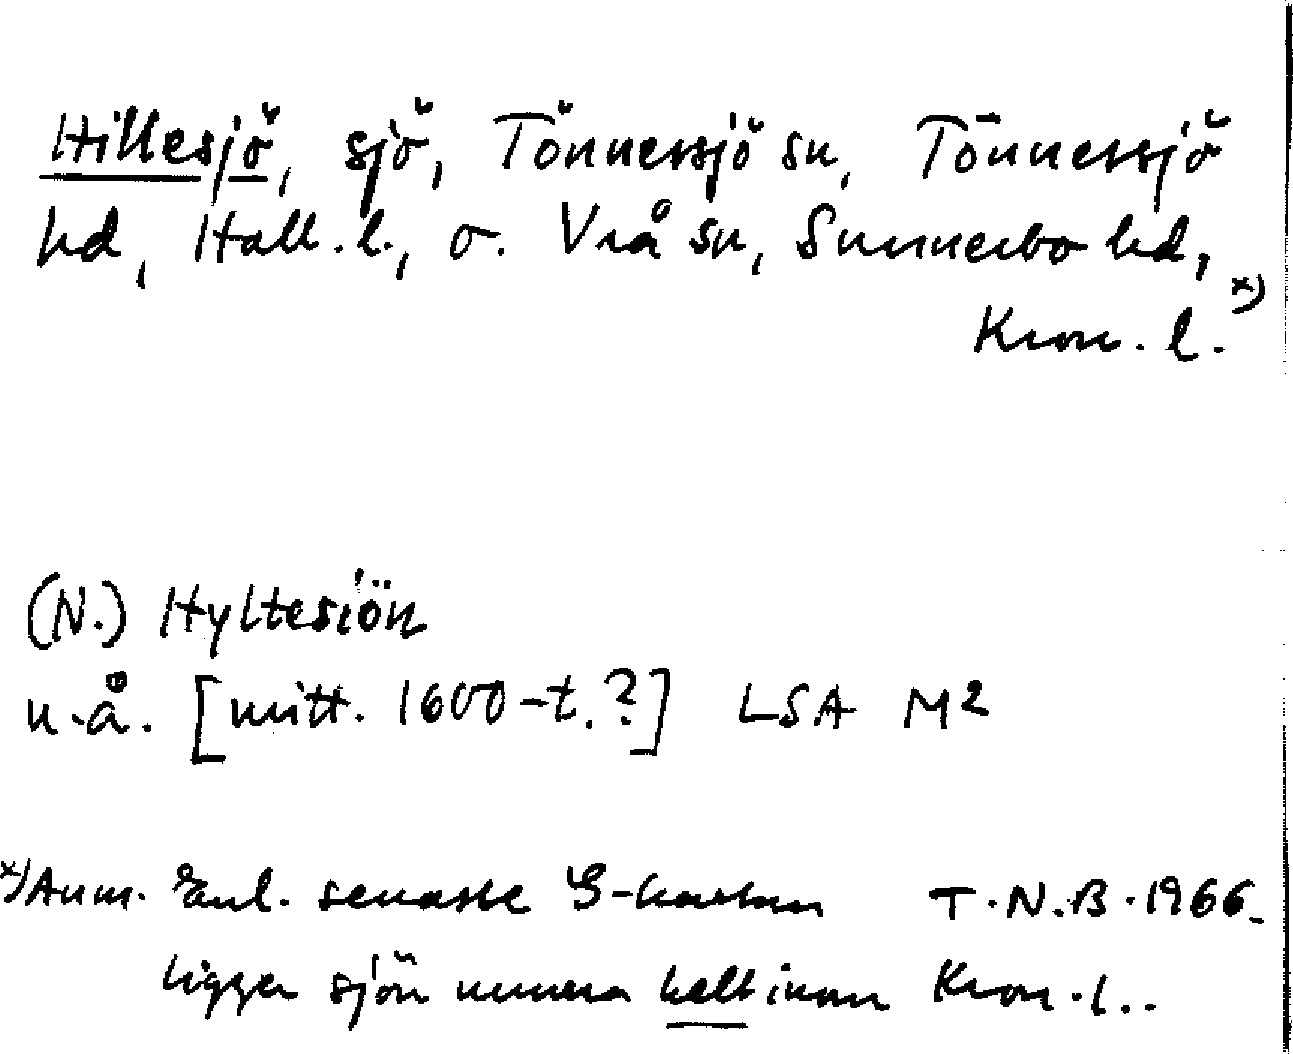 Hillesjö, sjö, Tönnersjö sn, Tönnersjö
hd, Hall. l., o. Vrå sn, Sunnerbo hd,
Kron. l. x)
(N.) Hyltesiön
u.å. [mitt. 1600-t.?] LSA M2
x) Anm. Enl. senaste G-kartan T.N.B. 1966
ligger sjön numera helt inom Kron. l..